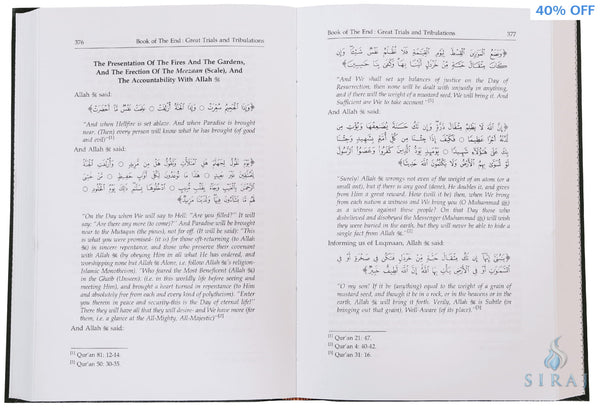 40% OFF
376 Book of The End : Great Trials and Tribulations
The Presentation Of The Fires And The Gardens,
And The Erection Of The Meezaan (Scale), And
The Accountability With Allah ﷻ
Allah ﷻ said:
﴿وَإِذَا الْجَحِيمُ سُعِّرَتْ ○ وَإِذَا الْجَنَّةُ أُزْلِفَتْ ○ عَلِمَتْ نَفْسٌ مَّا أَحْضَرَتْ﴾
"And when Hellfire is set ablaze. And when Paradise is brought
near. (Then) every person will know what he has brought (of good
and evil)"[1]
And Allah ﷻ said:
﴿يَوْمَ نَقُولُ لِجَهَنَّمَ هَلِ امْتَلَأْتِ وَتَقُولُ هَلْ مِن مَّزِيدٍ ○ وَأُزْلِفَتِ الْجَنَّةُ
لِلْمُتَّقِينَ غَيْرَ بَعِيدٍ ○ هَذَا مَا تُوعَدُونَ لِكُلِّ أَوَّابٍ حَفِيظٍ ○ مَنْ خَشِيَ
الرَّحْمَن بِالْغَيْبِ وَجَاء بِقَلْبٍ مُّنِيبٍ ○ ادْخُلُوهَا بِسَلَامٍ ذَلِكَ يَوْمُ الْخُلُودِ ○
لَهُم مَّا يَشَاؤُونَ فِيهَا وَلَدَيْنَا مَزِيدٌ﴾
"On the Day when We will say to Hell: "Are you filled?" It will
say: "Are there any more (to come)?" And Paradise will be brought
near to the Muttaqun (the pious), not far off. (It will be said): "This
is what you were promised- (it is) for those oft-returning (to Allah)
in sincere repentance, and those who preserve their covenant
with Allah (by obeying Him in all what He has ordered, and
worshipping none but Allah ﷻ Alone, i.e. follow Allah ﷻ's religion-
Islamic Monotheism). "Who feared the Most Beneficent (Allah ﷻ)
in the Ghaib (Unseen): (i.e. in this worldly life before seeing and
meeting Him), and brought a heart turned in repentance (to Him
and absolutely free from each and every kind of polytheism). "Enter
you therein in peace and security-this is the Day of eternal life!"
There they will have all that they will desire- and We have more (for
them, i.e. a glance at the All-Mighty, All-Majestic)"[2]
And Allah ﷻ said:
[1] Qur'an 81: 12-14.
[2] Qur'an 50: 30-35.
Book of The End : Great Trials and Tribulations 377
﴿وَنَضَعُ الْمَوَازِينَ الْقِسْطَ لِيَوْمِ الْقِيَامَةِ فَلَا تُظْلَمُ نَفْسٌ شَيْئًا وَإِن
كَانَ مِثْقَالَ حَبَّةٍ مِّنْ خَرْدَلٍ أَتَيْنَا بِهَا وَكَفَى بِنَا حَاسِبِينَ﴾
"And We shall set up balances of justice on the Day of
Resurrection, then none will be dealt with unjustly in anything,
and if there will be the weight of a mustard seed, We will bring it. And
Sufficient are We to take account".[1]
And Allah ﷻ said:
﴿إِنَّ اللّهَ لاَ يَظْلِمُ مِثْقَالَ ذَرَّةٍ وَإِن تَكُ حَسَنَةً يُضَاعِفْهَا وَيُؤْتِ مِن لَّدُنْهُ
أَجْرًا عَظِيمًا ○ فَكَيْفَ إِذَا جِئْنَا مِن كُلِّ أُمَّةٍ بِشَهِيدٍ وَجِئْنَا
بِكَ عَلَى هَؤُلاء شَهِيدًا ○ يَوْمَئِذٍ يَوَدُّ الَّذِينَ كَفَرُواْ وَعَصَوُاْ الرَّسُولَ
لَوْ تُسَوَّى بِهِمُ الأَرْضُ وَلاَ يَكْتُمُونَ اللّهَ حَدِيثًا﴾
"Surely! Allah ﷻ wrongs not even of the weight of an atom (or a
small ant), but if there is any good (done), He doubles it, and gives
from Him a great reward. How (will it be) then, when We bring
from each nation a witness and We bring you (O Muhammad ﷺ)
as a witness against these people? On that Day those who
disbelieved and disobeyed the Messenger (Muhammad ﷺ) will wish
they were buried in the earth, but they will never be able to hide a
single fact from Allah ﷻ".[2]
Informing us of Luqmaan, Allah ﷻ said:
﴿يَا بُنَيَّ إِنَّهَا إِن تَكُ مِثْقَالَ حَبَّةٍ مِّنْ خَرْدَلٍ فَتَكُن فِي صَخْرَةٍ أَوْ فِي
السَّمَاوَاتِ أَوْ فِي الْأَرْضِ يَأْتِ بِهَا اللَّهُ إِنَّ اللَّهَ لَطِيفٌ خَبِيرٌ﴾
"O my son! If it be (anything) equal to the weight of a grain of
mustard seed, and though it be in a rock, or in the heavens or in the
earth, Allah ﷻ will bring it forth. Verily, Allah ﷻ is Subtle (in
bringing out that grain), Well-Aware (of its place)."[3]
[1] Qur'an 21: 47.
[2] Qur'an 4: 40-42.
[3] Qur'an 31: 16.
SIRAJ